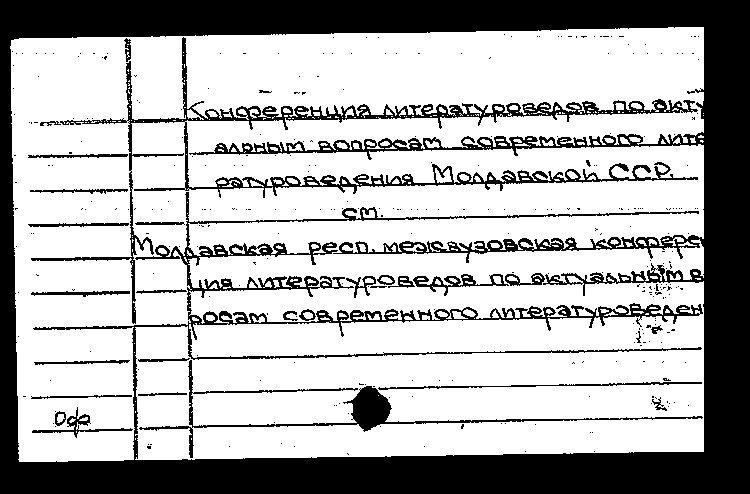 Конференция литературоведов по акту
альным вопросам современного лите
ратуроведения Молдавской ССР.
см.
Молдавская респ. межвузовская конферен
ция литературоведов по актуальным в
росам современного литературоведен
Офр